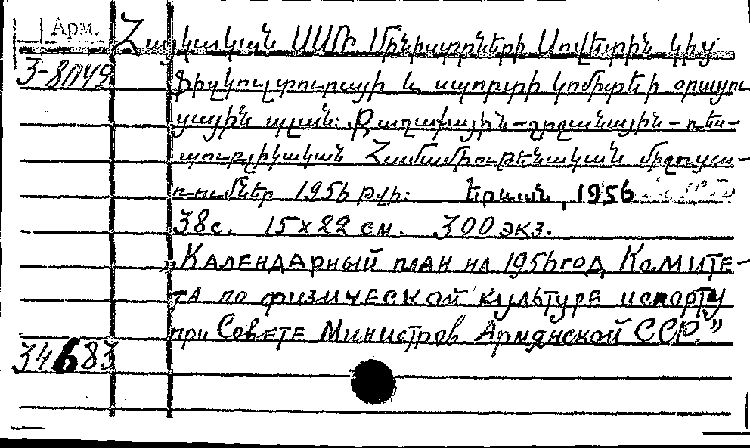 Арм.
Հայկական ՍՍՌ Մինիստրների Սովետին կից
3-8049 Ֆիզկուլտուրայի և սպորտի կոմիտեի օրացու-
ցային պլան: Քաղաքային-շրջանային-ռես-
պուբլիկական Համամիութենական միջոցա-
ռումներ 1956 թվի: Երևան, 1956
38с. 15×22 см. 300 экз.
„Календарный план на 1956 год Комите-
та по физической культуре и спорту
при Совете Министров Армянской ССР."
34683